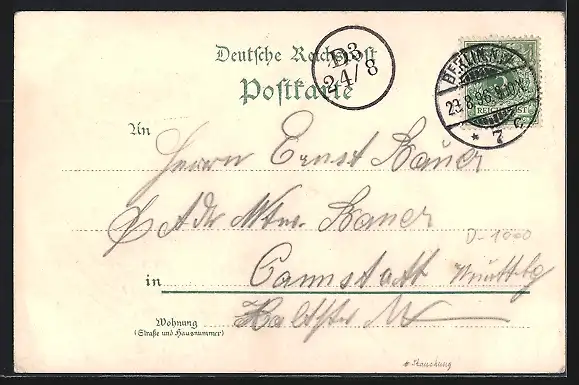 Deutsche Reichspost
Postkarte
D3
24/8
BERLIN
23.8.96.
* 7 c.
REICHSPOST
An
Herrn Ernst Kauer
Adr Wtwe. Kauer
D-1000
in Cannstatt Württbg
Wohnung
(Straße und Hausnummer)